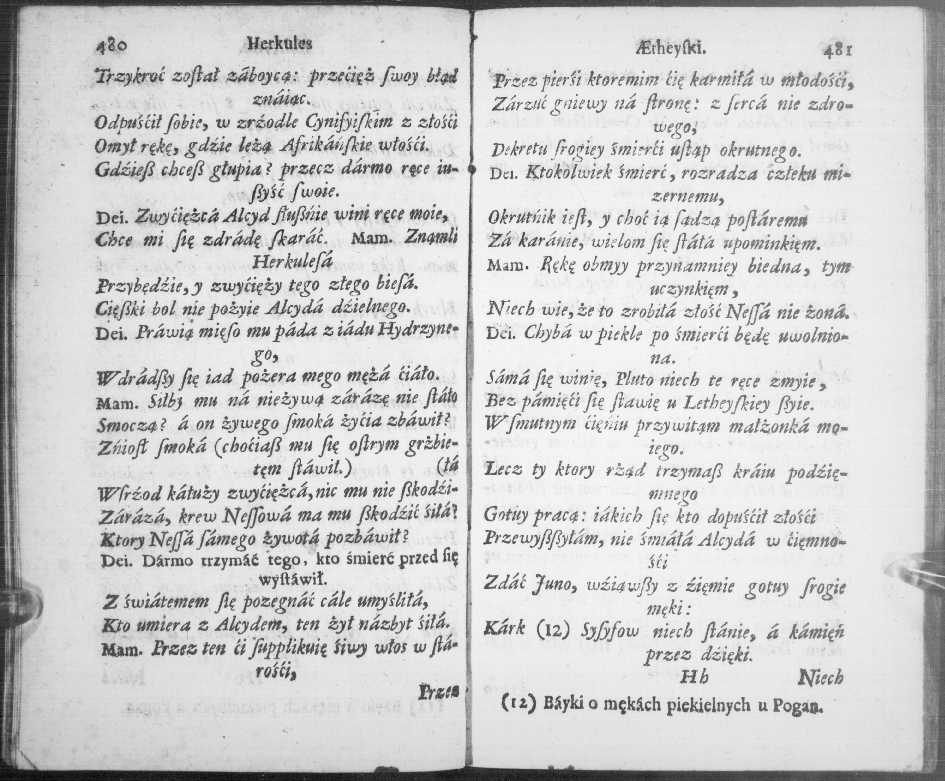 480 Herkules
Trzykroć zoſtał záboycą: przećięż ſwoy błąd
znáiąc.
Odpuśćił ſobie, w zrźodle Cynifyiſkim z złośći
Omył rękę, gdzie leżą Afrikáńſkie włośći.
Gdzieß chceß głupia? przecz dármo ręce iu-
ßyść ſwoie.
Dei. Zwyćiężcá Alcyd ſłußńie wini ręce moie,
Chce mi ſię zdrádę ſkaráć. Mam. Znamli
Herkuleſá
Przybędźie, y zwyćięży tego złego bieſá.
Cięſki bol nie pożyie Alcydá dźielnego.
Dei. Práwią mięſo mu páda z iádu Hydrzyne-
go,
Wdrádßy ſię iad pożera mego mężá ćiáło.
Mam. Siłbz mu ná nieżywą zárázę nie ſtáło
Smoczą? á on żywego ſmoká żyćia zbáwił?
Zńioſł ſmoká (choćiaß mu ſię oſtrym grżbie-
tęm ſtáwił.) (łá
Wſrźod káłuży zwyćiężcá, nic mu nie ßkodźi-
Zárázá, krew Neſſowá ma mu ßkodźić śiłá?
Ktory Neſſá ſámego żywotá pozbáwił?
Dei. Dármo trzymáć tego, kto śmierć przed ſię
wyſtáwił.
Z świátemem ſię pozegnáć cále umyśliłá,
Kto umiera z Alcydem, ten żył názbyt śiłá.
Mam. Przez ten ći ſupplikuię śiwy włos w ſtá-
rośći,
Przez
Ætheyſki. 481
Przez pierśi ktoremim ćię karmiłá w młodośći,
Zárzuć gniewy ná ſtronę: z ſercá nie zdro-
wego,
Dekretu ſrogiey śmierći uſtąp okrutnego.
Dei. Ktokolwiek śmierć, rozradza człeku mi-
zernemu,
Okrutńik ieſt, y choć ią ſądzą poſtáremu
Zá karánie, wielom ſię ſtáłá upominkięm.
Mam. Rękę obmyy przynamniey biedna, tym
uczynkięm,
Niech wie, że to zrobiłá złość Neſſá nie żoná.
Dei. Chybá w piekle po śmierći będę uwolnio-
na.
Sámá ſię winię, Pluto niech te ręce zmyie,
Bez pámięći ſię ſtawię u Letheyſkiey ßyie.
W ſmutnym ćięniu przywitąm małżonká mo-
iego.
Lecz ty ktory rżąd trzymaß kráiu podźię-
mnego
Gotuy pracą: iákich ſię kto dopuśćił złośći
Przewyßßyłám, nie śmiáłá Alcydá w ćięmno-
śći
Zdáć Juno, wźiąwßy z źięmie gotuy ſrogie
męki:
Kárk (12) Syſyfow niech ſtánie, á kámięń
przez dzięki.
Hh Niech
(12) Báyki o mękách piekielnych u Pogan.